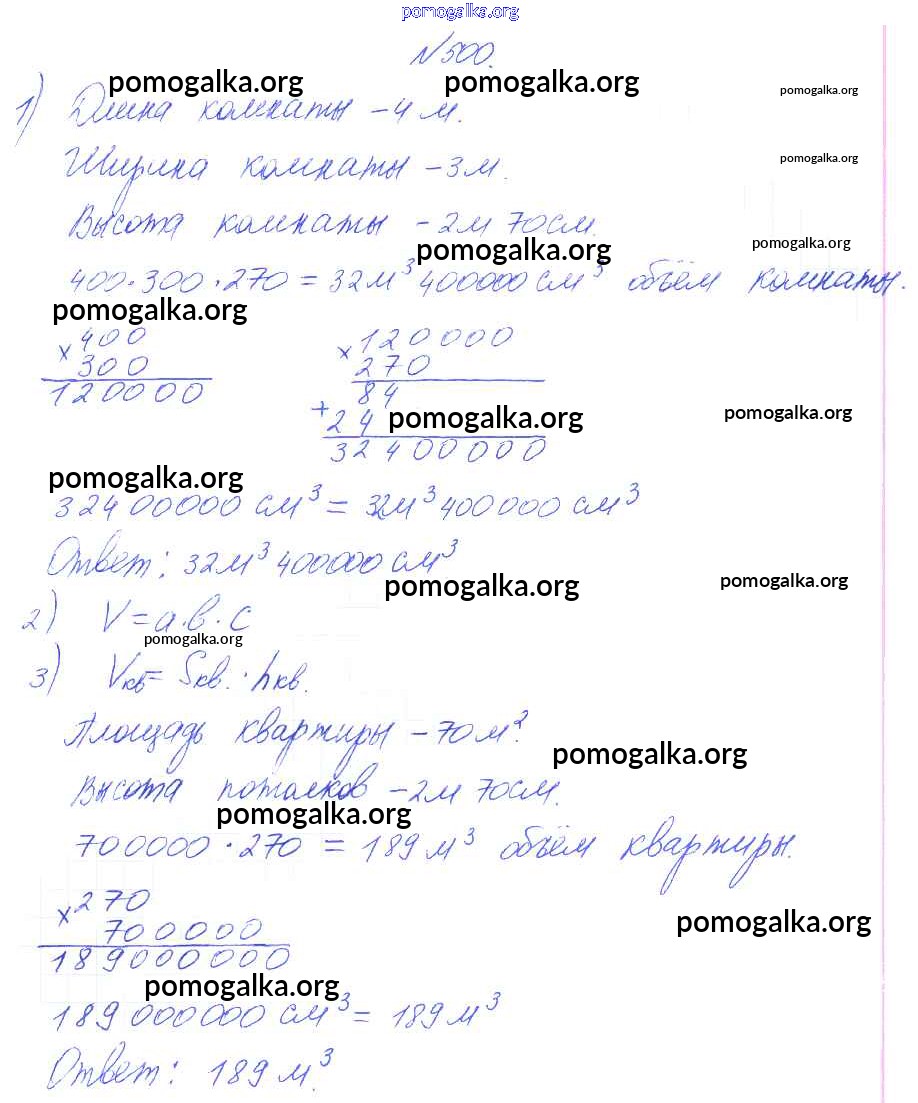 pomogalka.org
N500.
pomogalka.org pomogalka.org pomogalka.org
1) Длина комнаты - 4 м.
pomogalka.org
Ширина комнаты - 3м.
Высота комнаты - 2м 70см.
pomogalka.org pomogalka.org
400·300·270 = 32м³ 400000 см³ объём комнаты.
pomogalka.org
× 400 × 120000
300 270
120000 84
+ 24 pomogalka.org pomogalka.org
32400000
pomogalka.org
32400000 см³ = 32м³ 400000 см³
Ответ: 32м³ 400000 см³
pomogalka.org pomogalka.org
2) V = a·в·с
pomogalka.org
3) Vкв = Sкв. · hкв.
Площадь квартиры - 70 м².
pomogalka.org
Высота потолков - 2м 70см.
pomogalka.org
700000 · 270 = 189 м³ объём квартиры.
× 270
pomogalka.org
700000
189000000
pomogalka.org
189 000000 см³ = 189 м³
Ответ: 189 м³.